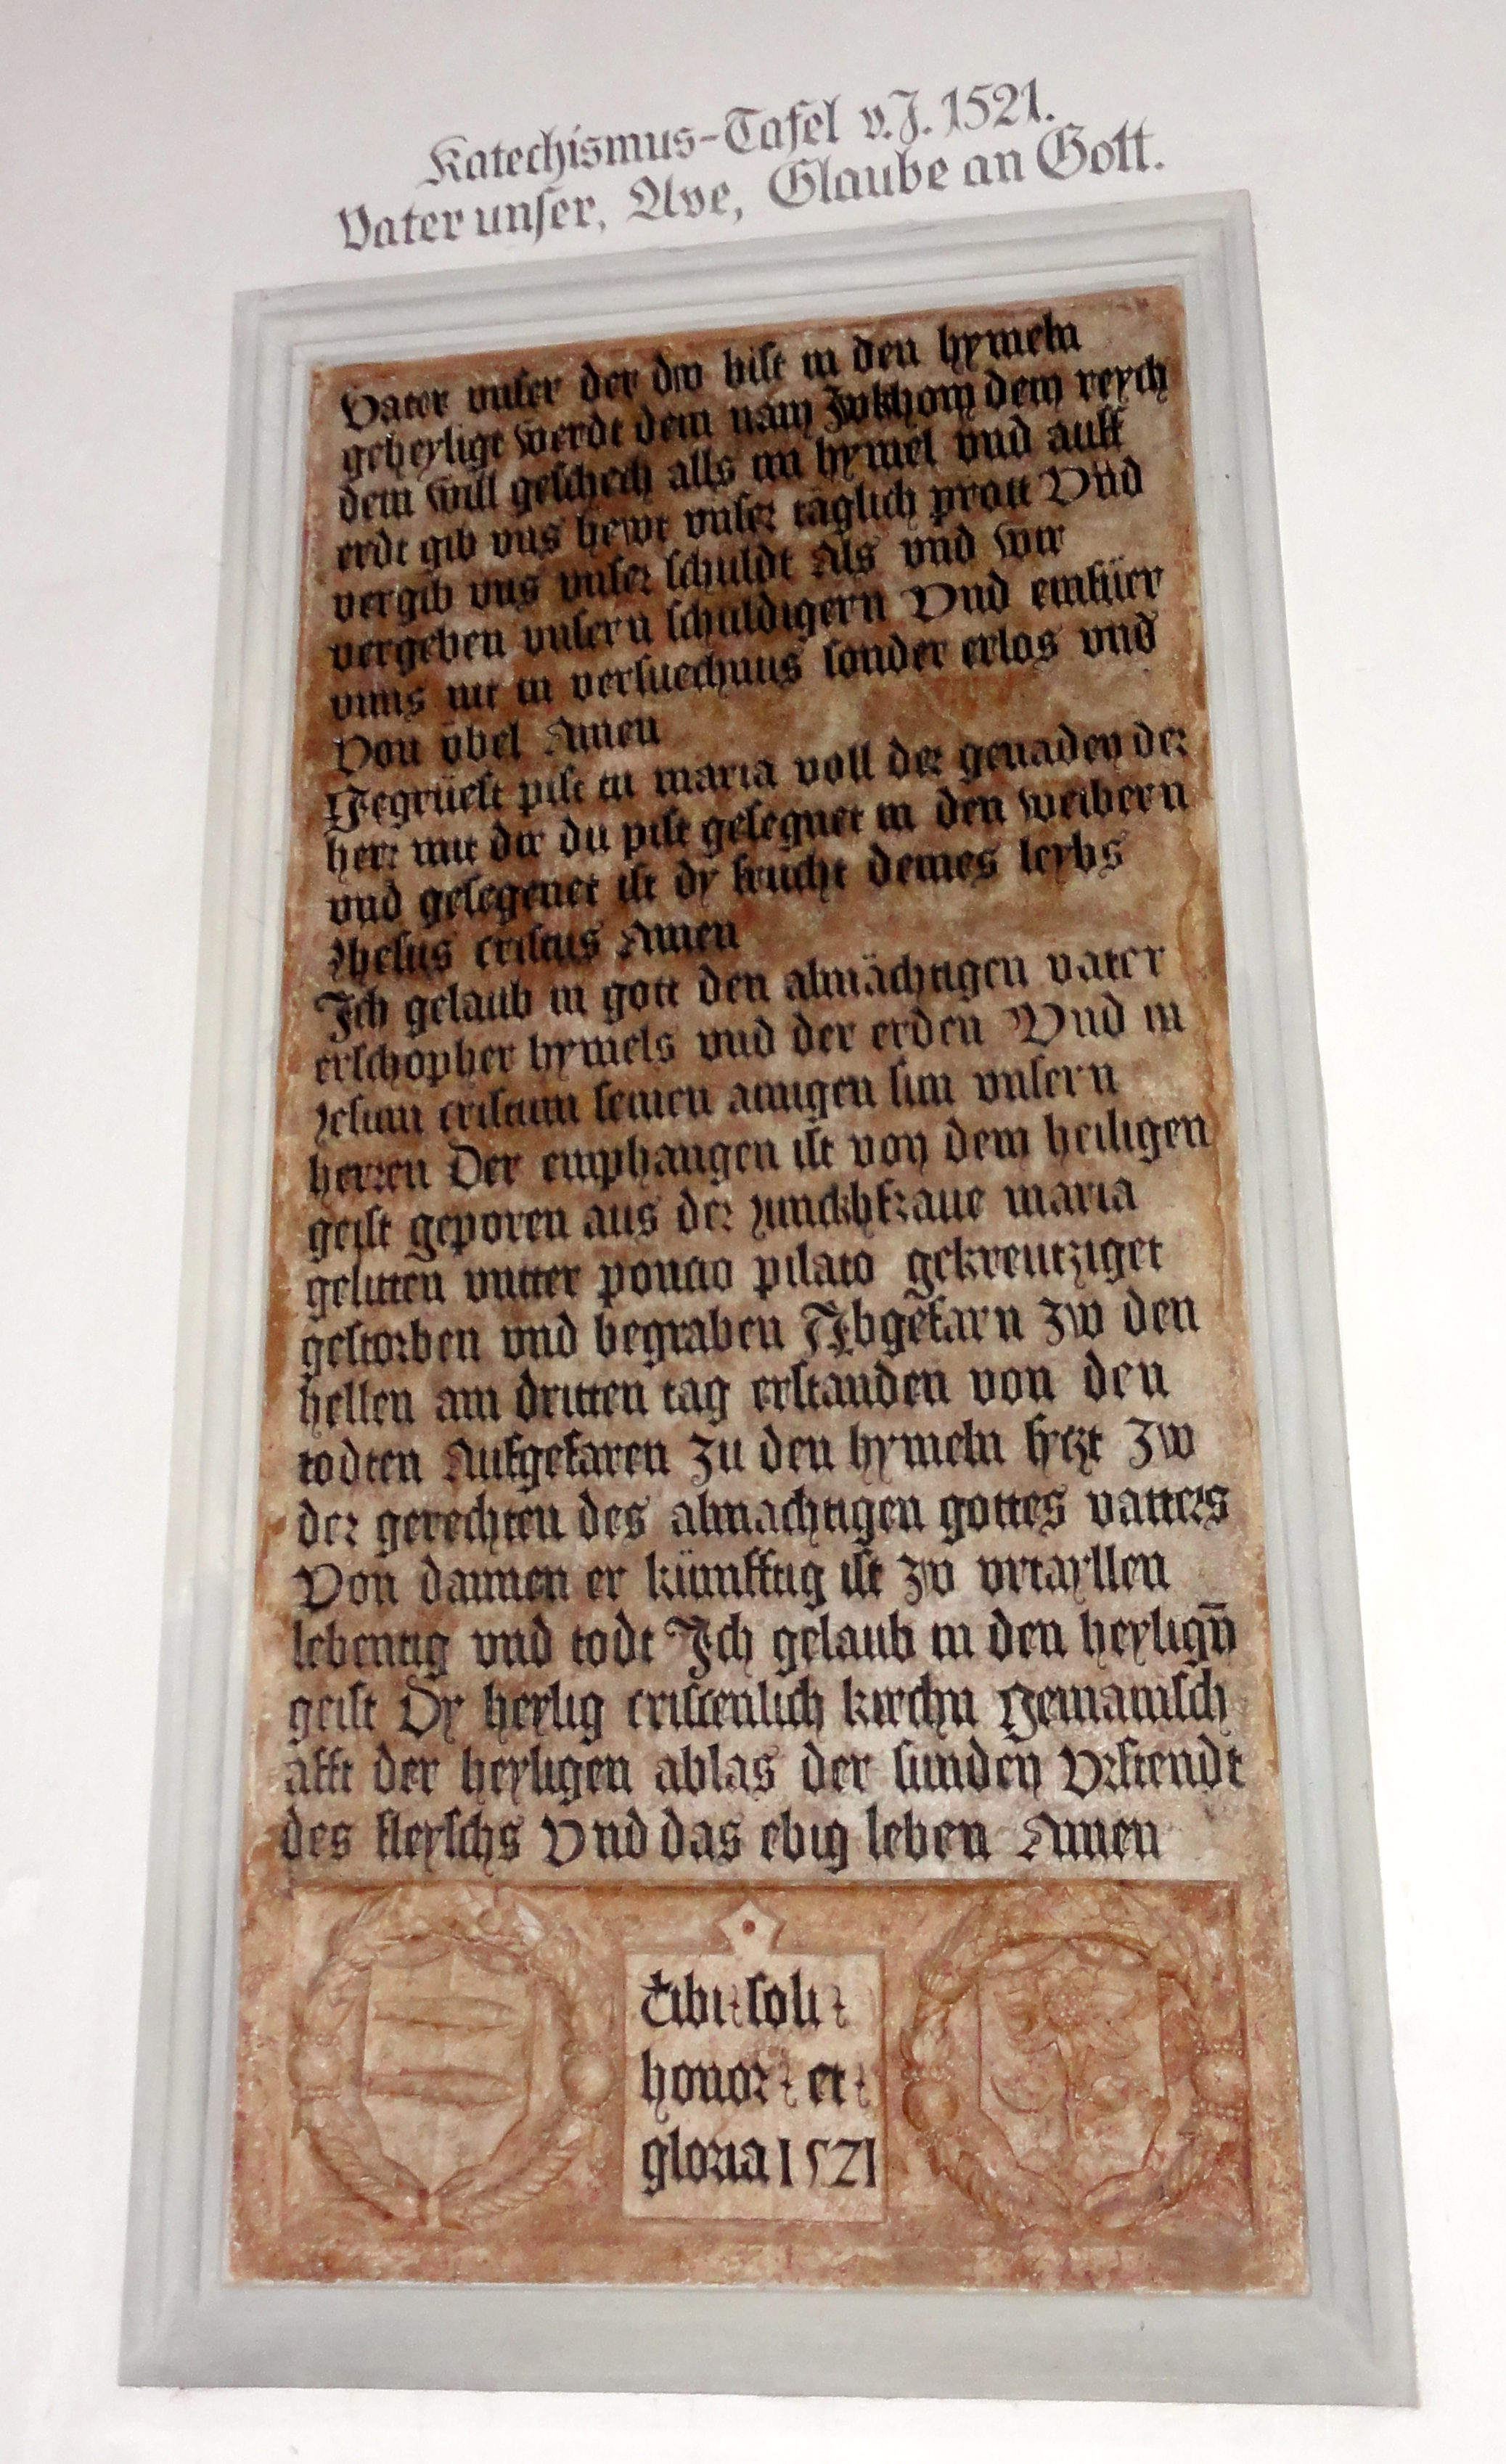 Katechismus-Tafel v. J. 1521.
Vater unser, Ave, Glaube an Gott.
Vater vnser der dw bist in den hymeln
geheyligt werdt dein nam Zwkhom dein reych
dein will geschech alls im hymel vnd auff
erdt gib vns hewt vnser täglich prott Vnd
vergib vns vnser schuldt Als vnd wir
vergeben vnsern schuldigern Vnd einfüer
vnns nit in versuechnus sonder erlos vnd
Von vbel Amen
Gegrüest pist tu maria voll der genaden der
herr mit dir du pist gesegnet in den weibern
vnd gesegenet ist dy frucht deines leybs
Jhesus cristus Amen
Ich gelaub in gott den almächtigen vater
erschopher hymels vnd der erden Vnd in
jesum cristum seinen ainigen sun vnsern
herren Der emphangen ist von dem heiligen
geist geporen aus der junckhfraue maria
gelitten vntter poncio pilato gekreutziget
gestorben vnd begraben Abgefarn zw den
hellen am dritten tag erstanden von den
todten Aufgefaren zu den hymeln syzt zw
der gerechten des almachtigen gottes vatters
Von dannen er künfftig ist zw vrtayllen
lebentig vnd todt Ich gelaub in den heylign̄
geist Dy heylig cristenlich kirchn gemainsch
afft der heyligen ablas der sunden Vrstendt
des fleyschs Vnd das ebig leben Amen
Tibi soli
honor et
gloria 1521